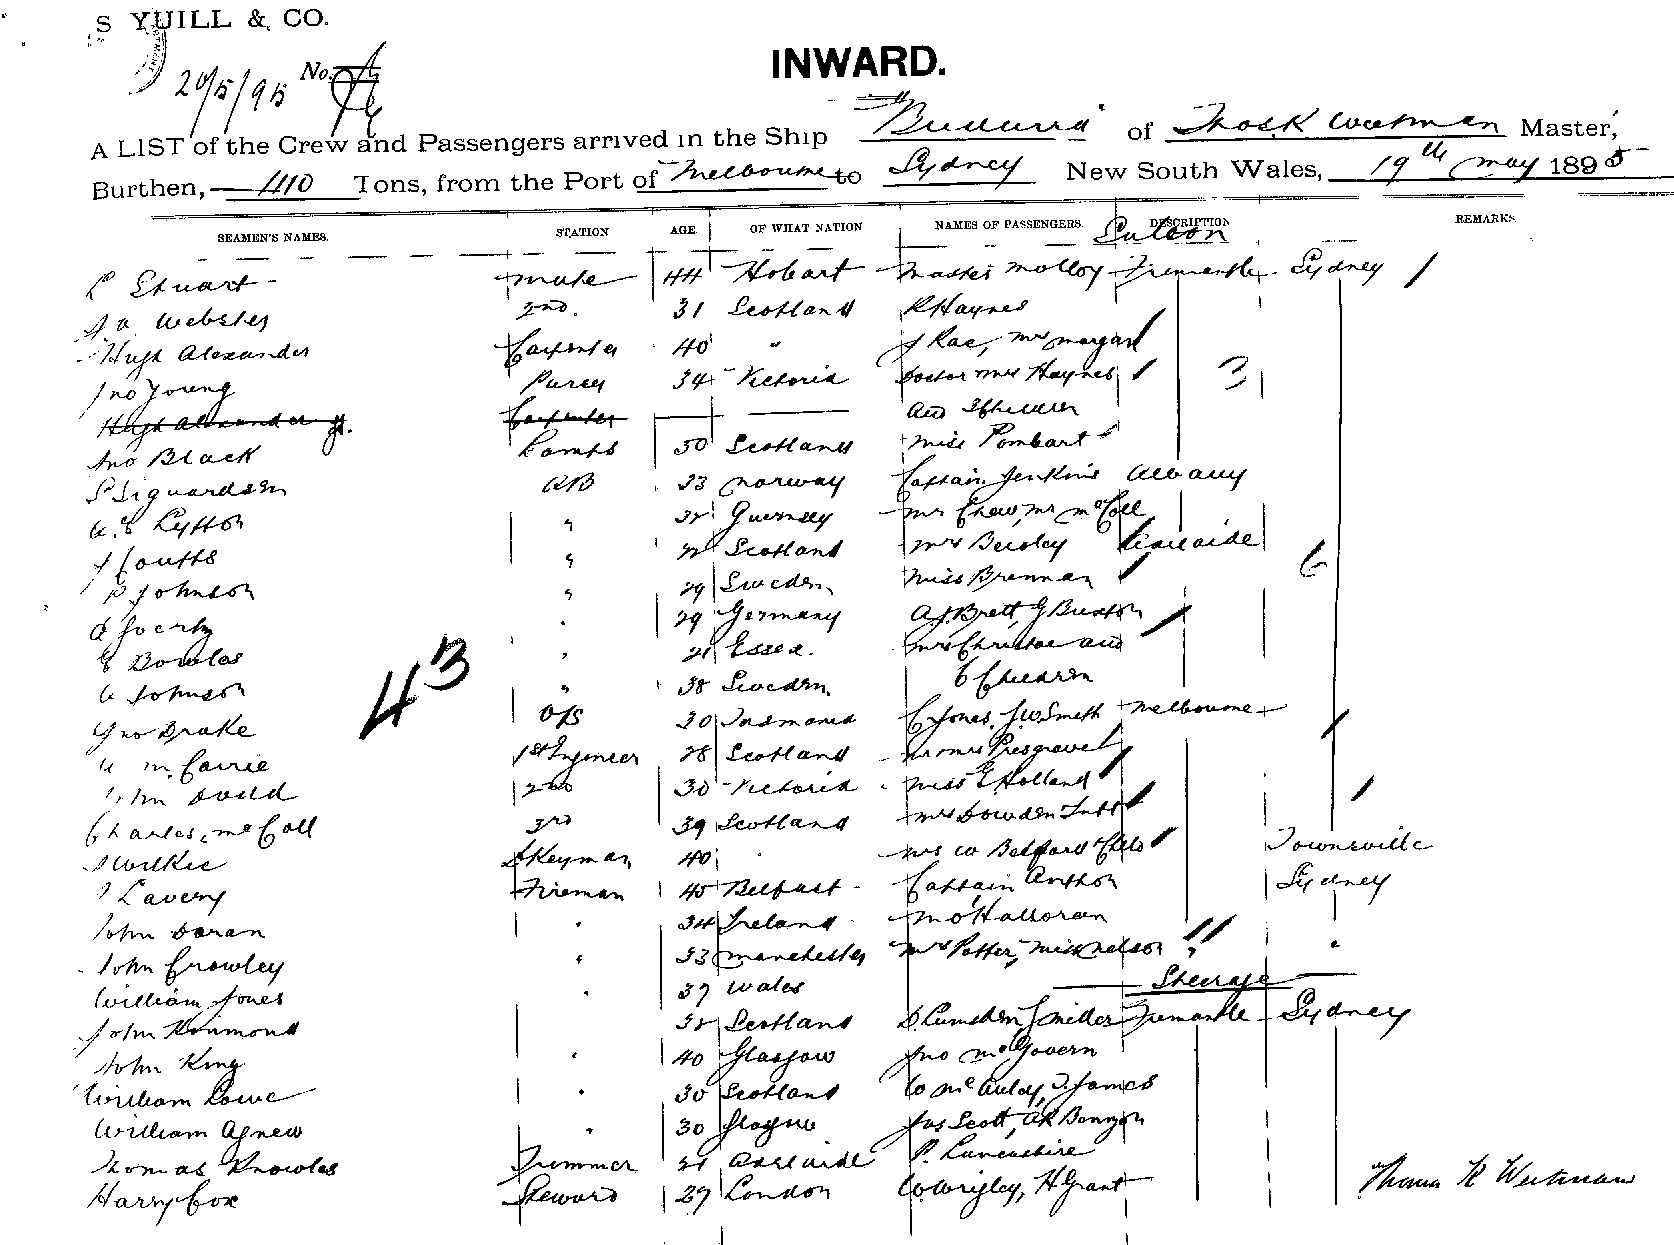 S YUILL & CO.
20/5/95 No.
INWARD.
A LIST of the Crew and Passengers arrived in the Ship of Thos K Weatman Master,
Burthen, 1110 Tons, from the Port of Melbourne to Sydney New South Wales, 19th May 1895
SEAMEN'S NAMES. STATION AGE OF WHAT NATION NAMES OF PASSENGERS. DESCRIPTION REMARKS
Saloon
Stuart mate 44 Hobart Master Molloy Fremantle Sydney
Webster 2nd 31 Scotland R Haynes
Hugh Alexander Carpenter 40 " J Rae, Mrs Morgan
Jno Young Purser 34 Victoria Doctor Mrs Haynes
Hugh Alexander Jr. Carpenter and Children
Jno Black Lamps 50 Scotland Miss Pombart
P Siguardsen AB 33 Norway Captain Jenkins Albany
Lytton " Guernsey Mr Chew, Mr McColl
J Coutts " Scotland Mrs Beesley Adelaide
P Johnson " 29 Sweden Miss Brennan
29 Germany A J. Brett, G Buxton
Bowles " 21 Essex. Mrs Christoe and
Johnson " 38 Sweden 6 Children
43
Jno Drake O/S 30 Tasmania C Jones, J W Smith Melbourne
1st Engineer 28 Scotland Mr Mrs Presgrave
John Dodd 2nd 30 Victoria Miss E Holland
Charles McColl 3rd 39 Scotland Mrs Dowden
Wilkie Dkeyman 40 Mrs W Belford Child Townsville
Lavery Fireman 40 Belfast Captain Sydney
John Doran " 34 Ireland M O'Halloran
John Crowley " 33 Manchester Mrs Potter, Miss Nelson "
William Jones " 37 Wales
Steerage
John Scotland D Lumsden, J Miller Fremantle Sydney
John King " 40 Glasgow Jno McGovern
William Lowe " 30 Scotland W McAulay, T. James
William Agnew " 30 Glasgow Jas Scott, A R Benyon
Thomas Knowles Trimmer 21 Adelaide P. Lancashire
Harry Cox Steward 27 London W Wrigley, H Grant
Thomas K Weatman